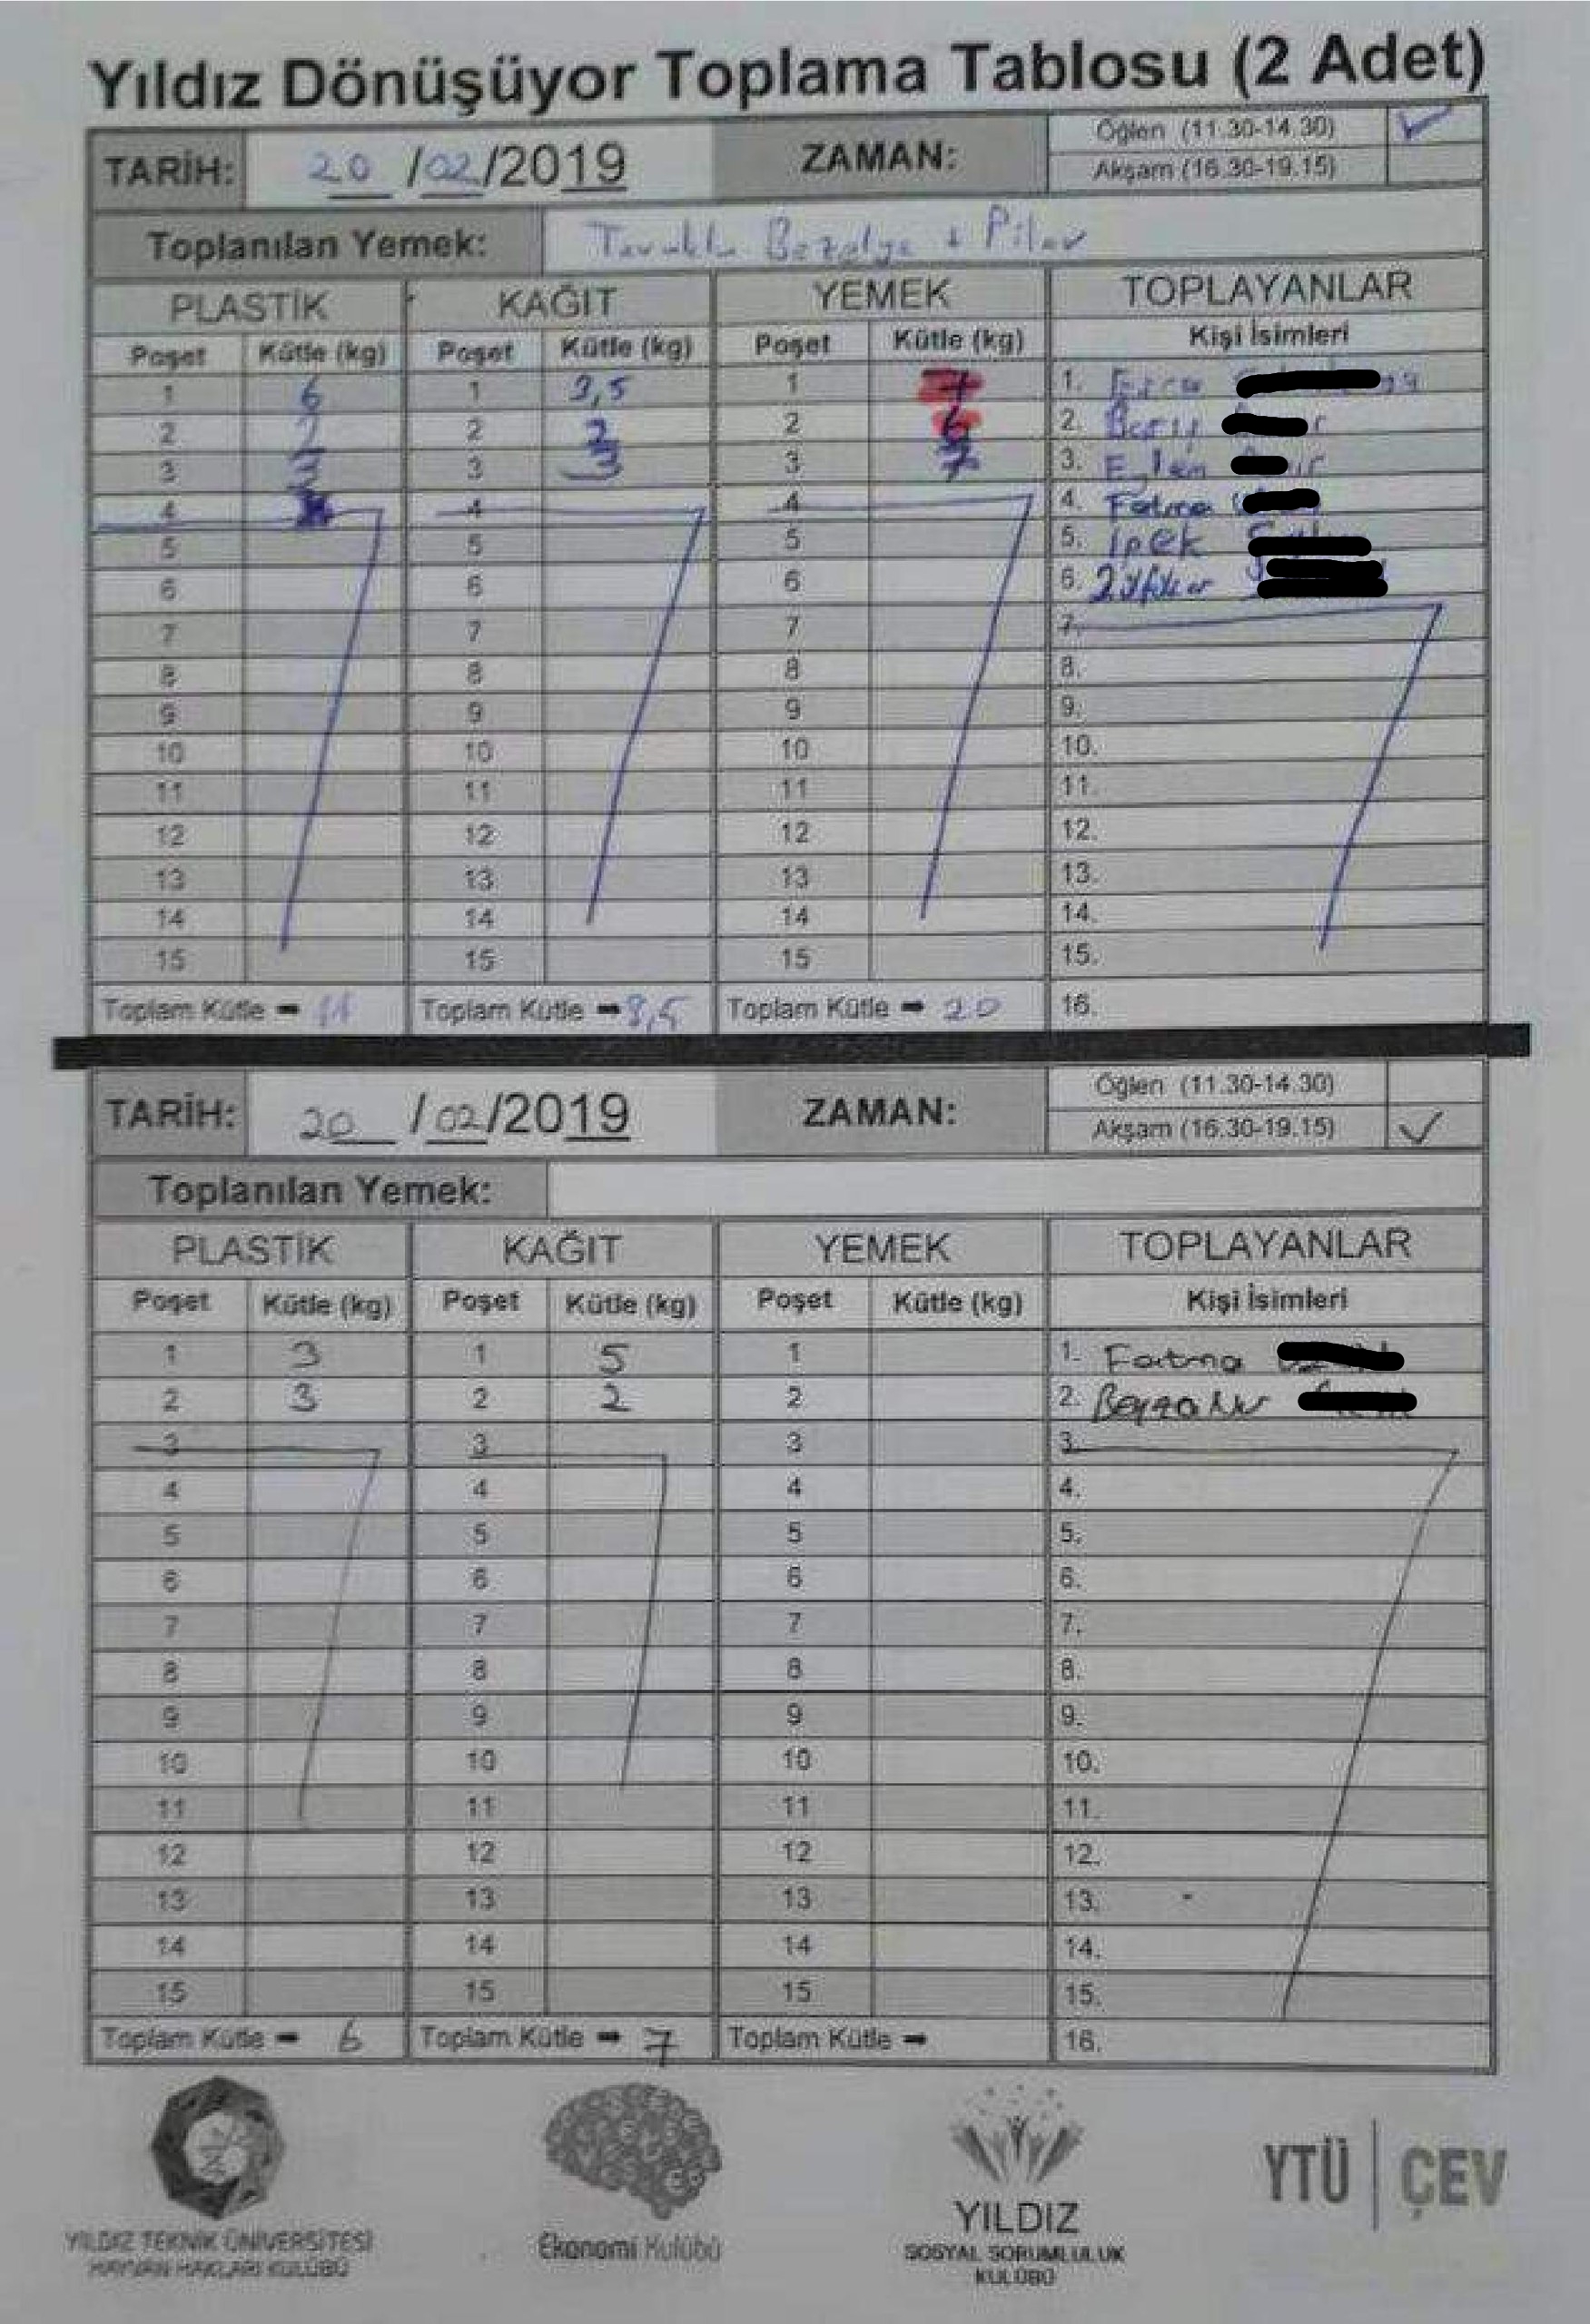 Yıldız Dönüşüyor Toplama Tablosu (2 Adet)
TARİH: 20/02/2019 ZAMAN: Öğlen (11.30-14.30) ✓
Akşam (16.30-19.15)
Toplanılan Yemek: Bezelye + Pilav
PLASTİK KAĞIT YEMEK TOPLAYANLAR
Poşet Kütle (kg) Poşet Kütle (kg) Poşet Kütle (kg) Kişi İsimleri
1 6 1 3,5 1 7 1.
2 2 2 2 2 6 2.
3 3 3 3 3 7 3. Eylem
4 4 4 4. Fatma
5 5 5 5. İpek
6 6 6 6.
7 7 7 7.
8 8 8 8.
9 9 9 9.
10 10 10 10.
11 11 11 11.
12 12 12 12.
13 13 13 13.
14 14 14 14.
15 15 15 15.
Toplam Kütle ➡ 11 Toplam Kütle ➡ 8,5 Toplam Kütle ➡ 20 16.
TARİH: 20/02/2019 ZAMAN: Öğlen (11.30-14.30)
Akşam (16.30-19.15) ✓
Toplanılan Yemek:
PLASTİK KAĞIT YEMEK TOPLAYANLAR
Poşet Kütle (kg) Poşet Kütle (kg) Poşet Kütle (kg) Kişi İsimleri
1 3 1 5 1 1. Fatma
2 3 2 2 2 2. Beyzanur
3 3 3 3.
4 4 4 4.
5 5 5 5.
6 6 6 6.
7 7 7 7.
8 8 8 8.
9 9 9 9.
10 10 10 10.
11 11 11 11.
12 12 12 12.
13 13 13 13.
14 14 14 14.
15 15 15 15.
Toplam Kütle ➡ 6 Toplam Kütle ➡ 7 Toplam Kütle ➡ 16.
YILDIZ TEKNİK ÜNİVERSİTESİ
HAYVAN HAKLARI KULÜBÜ
Ekonomi Kulübü
YILDIZ
SOSYAL SORUMLULUK
KULÜBÜ
YTÜ | ÇEV